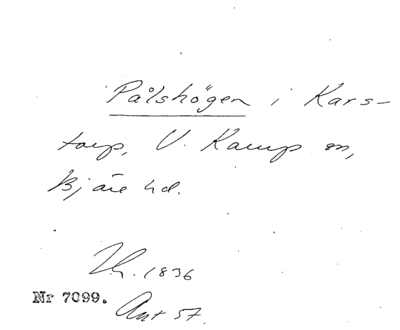 Pålshögen i Kars-
torp, V. Karup sn,
Bjäre hd.
Th. 1836
Nr 7099.
Ant 57.